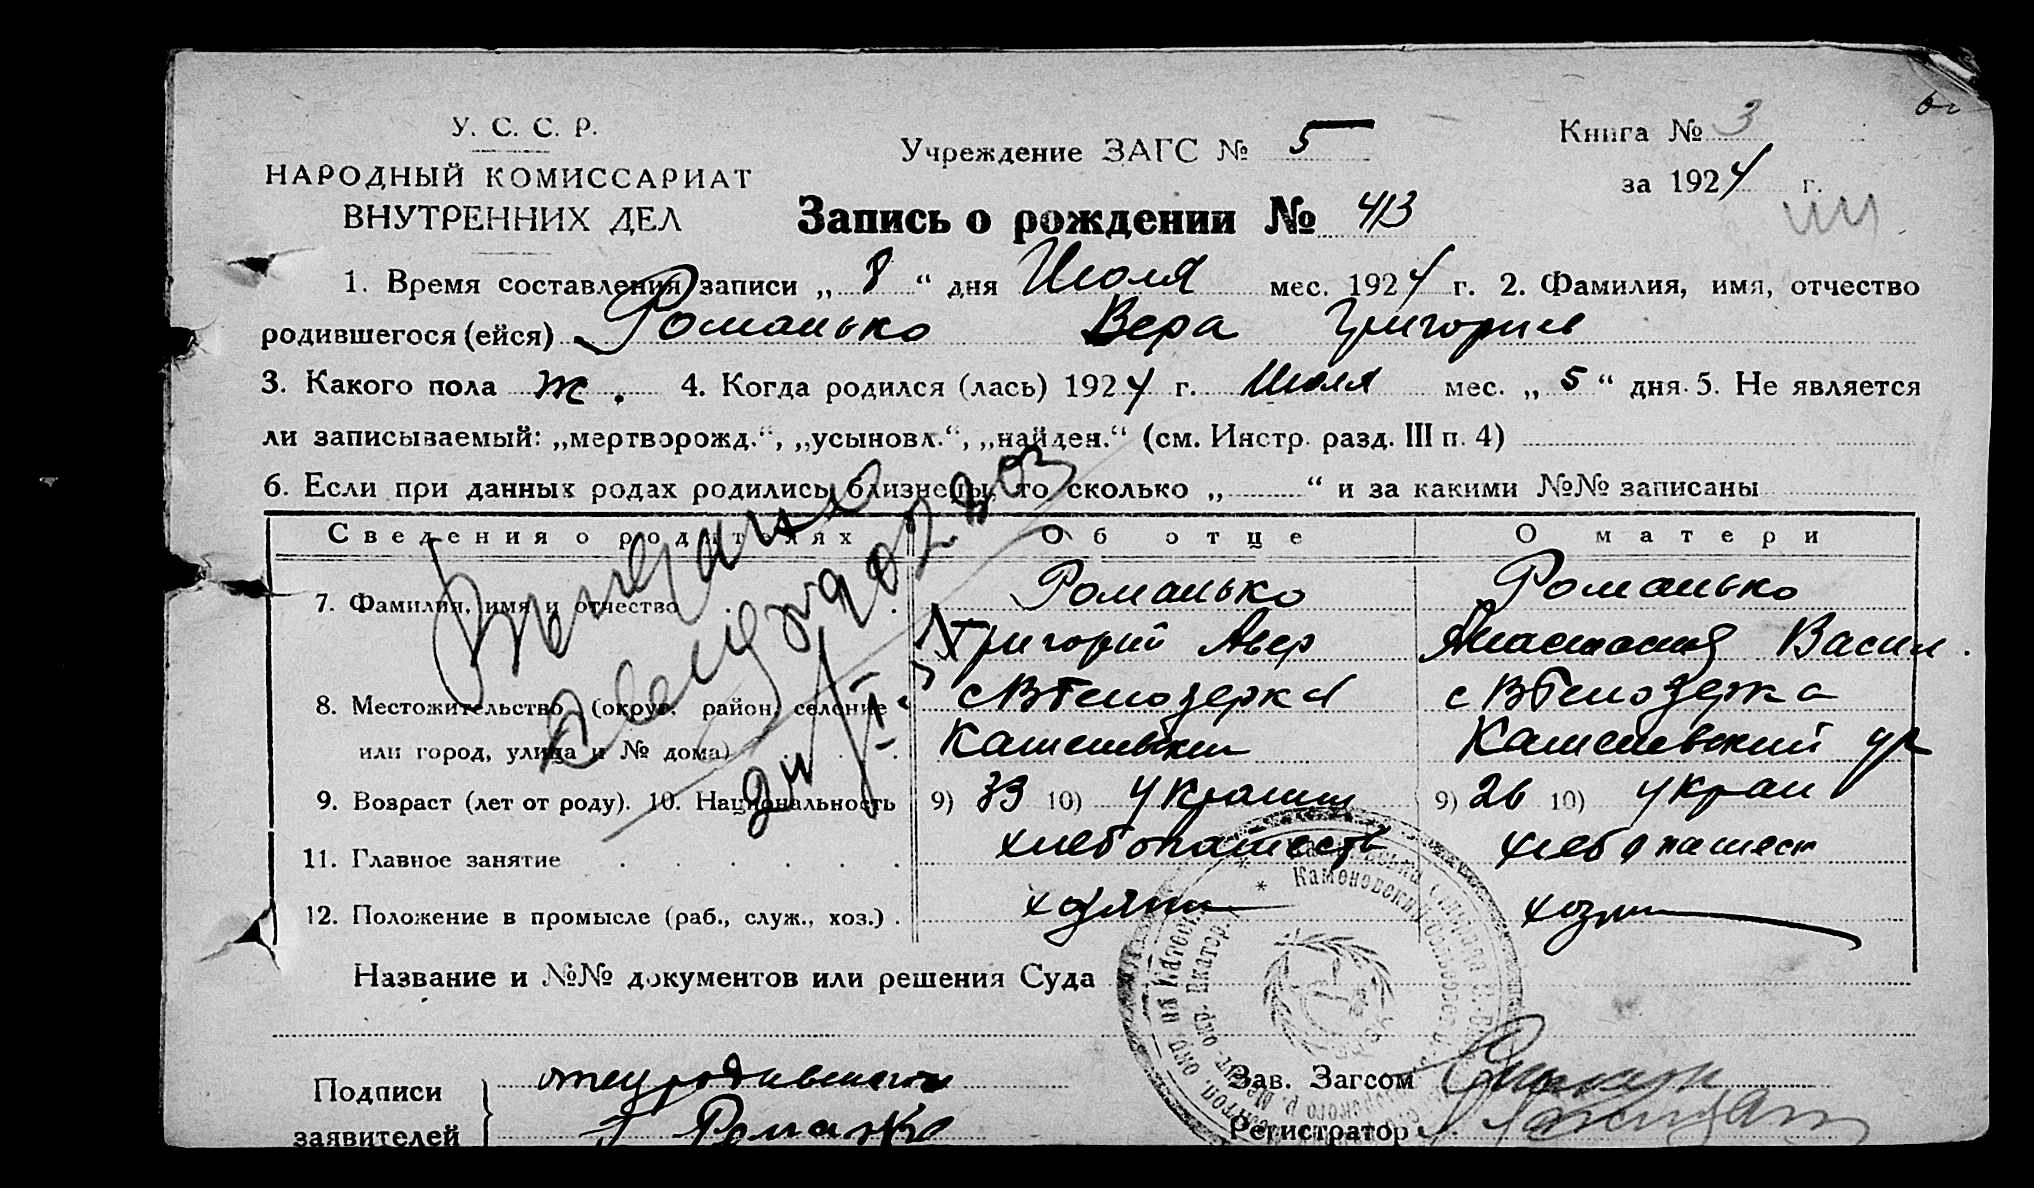 У. С. С. Р.
НАРОДНЫЙ КОМИССАРИАТ
ВНУТРЕННИХ ДЕЛ
Учреждение ЗАГС № 5
Книга № 3
за 1924 г.
Запись о рождении № 413
1. Время составления записи „ 8 “ дня Июля мес. 1924 г. 2. Фамилия, имя, отчество
родившегося (ейся) Романько Вера Григориев
3. Какого пола ж. 4. Когда родился (лась) 1924 г. Июля мес. „ 5 “ дня 5. Не является
ли записываемый: „мертворожд.“, „усыновл.“, „найден.“ (см. Инстр. разд. III п. 4)
6. Если при данных родах родились близнецы, то сколько „ “ и за какими №№ записаны
Сведения о родителях Об отце О матери
7. Фамилия, имя и отчество Романько Романько
Григорий Авер Анастасия Васил.
8. Местожительство (округ, район, селение с В Белозерка с В Белозерка
или город, улица и № дома) Каменский Каменский
9. Возраст (лет от роду). 10. Национальность 9) 33 10) Украин 9) 26 10) Украи
11. Главное занятие хлебопашеств хлебопашест
12. Положение в промысле (раб., служ., хоз.) хозяин
Название и №№ документов или решения Суда
Подписи
заявителей
отец родившегося
Г Романько
Зав. Загсом
Регистратор